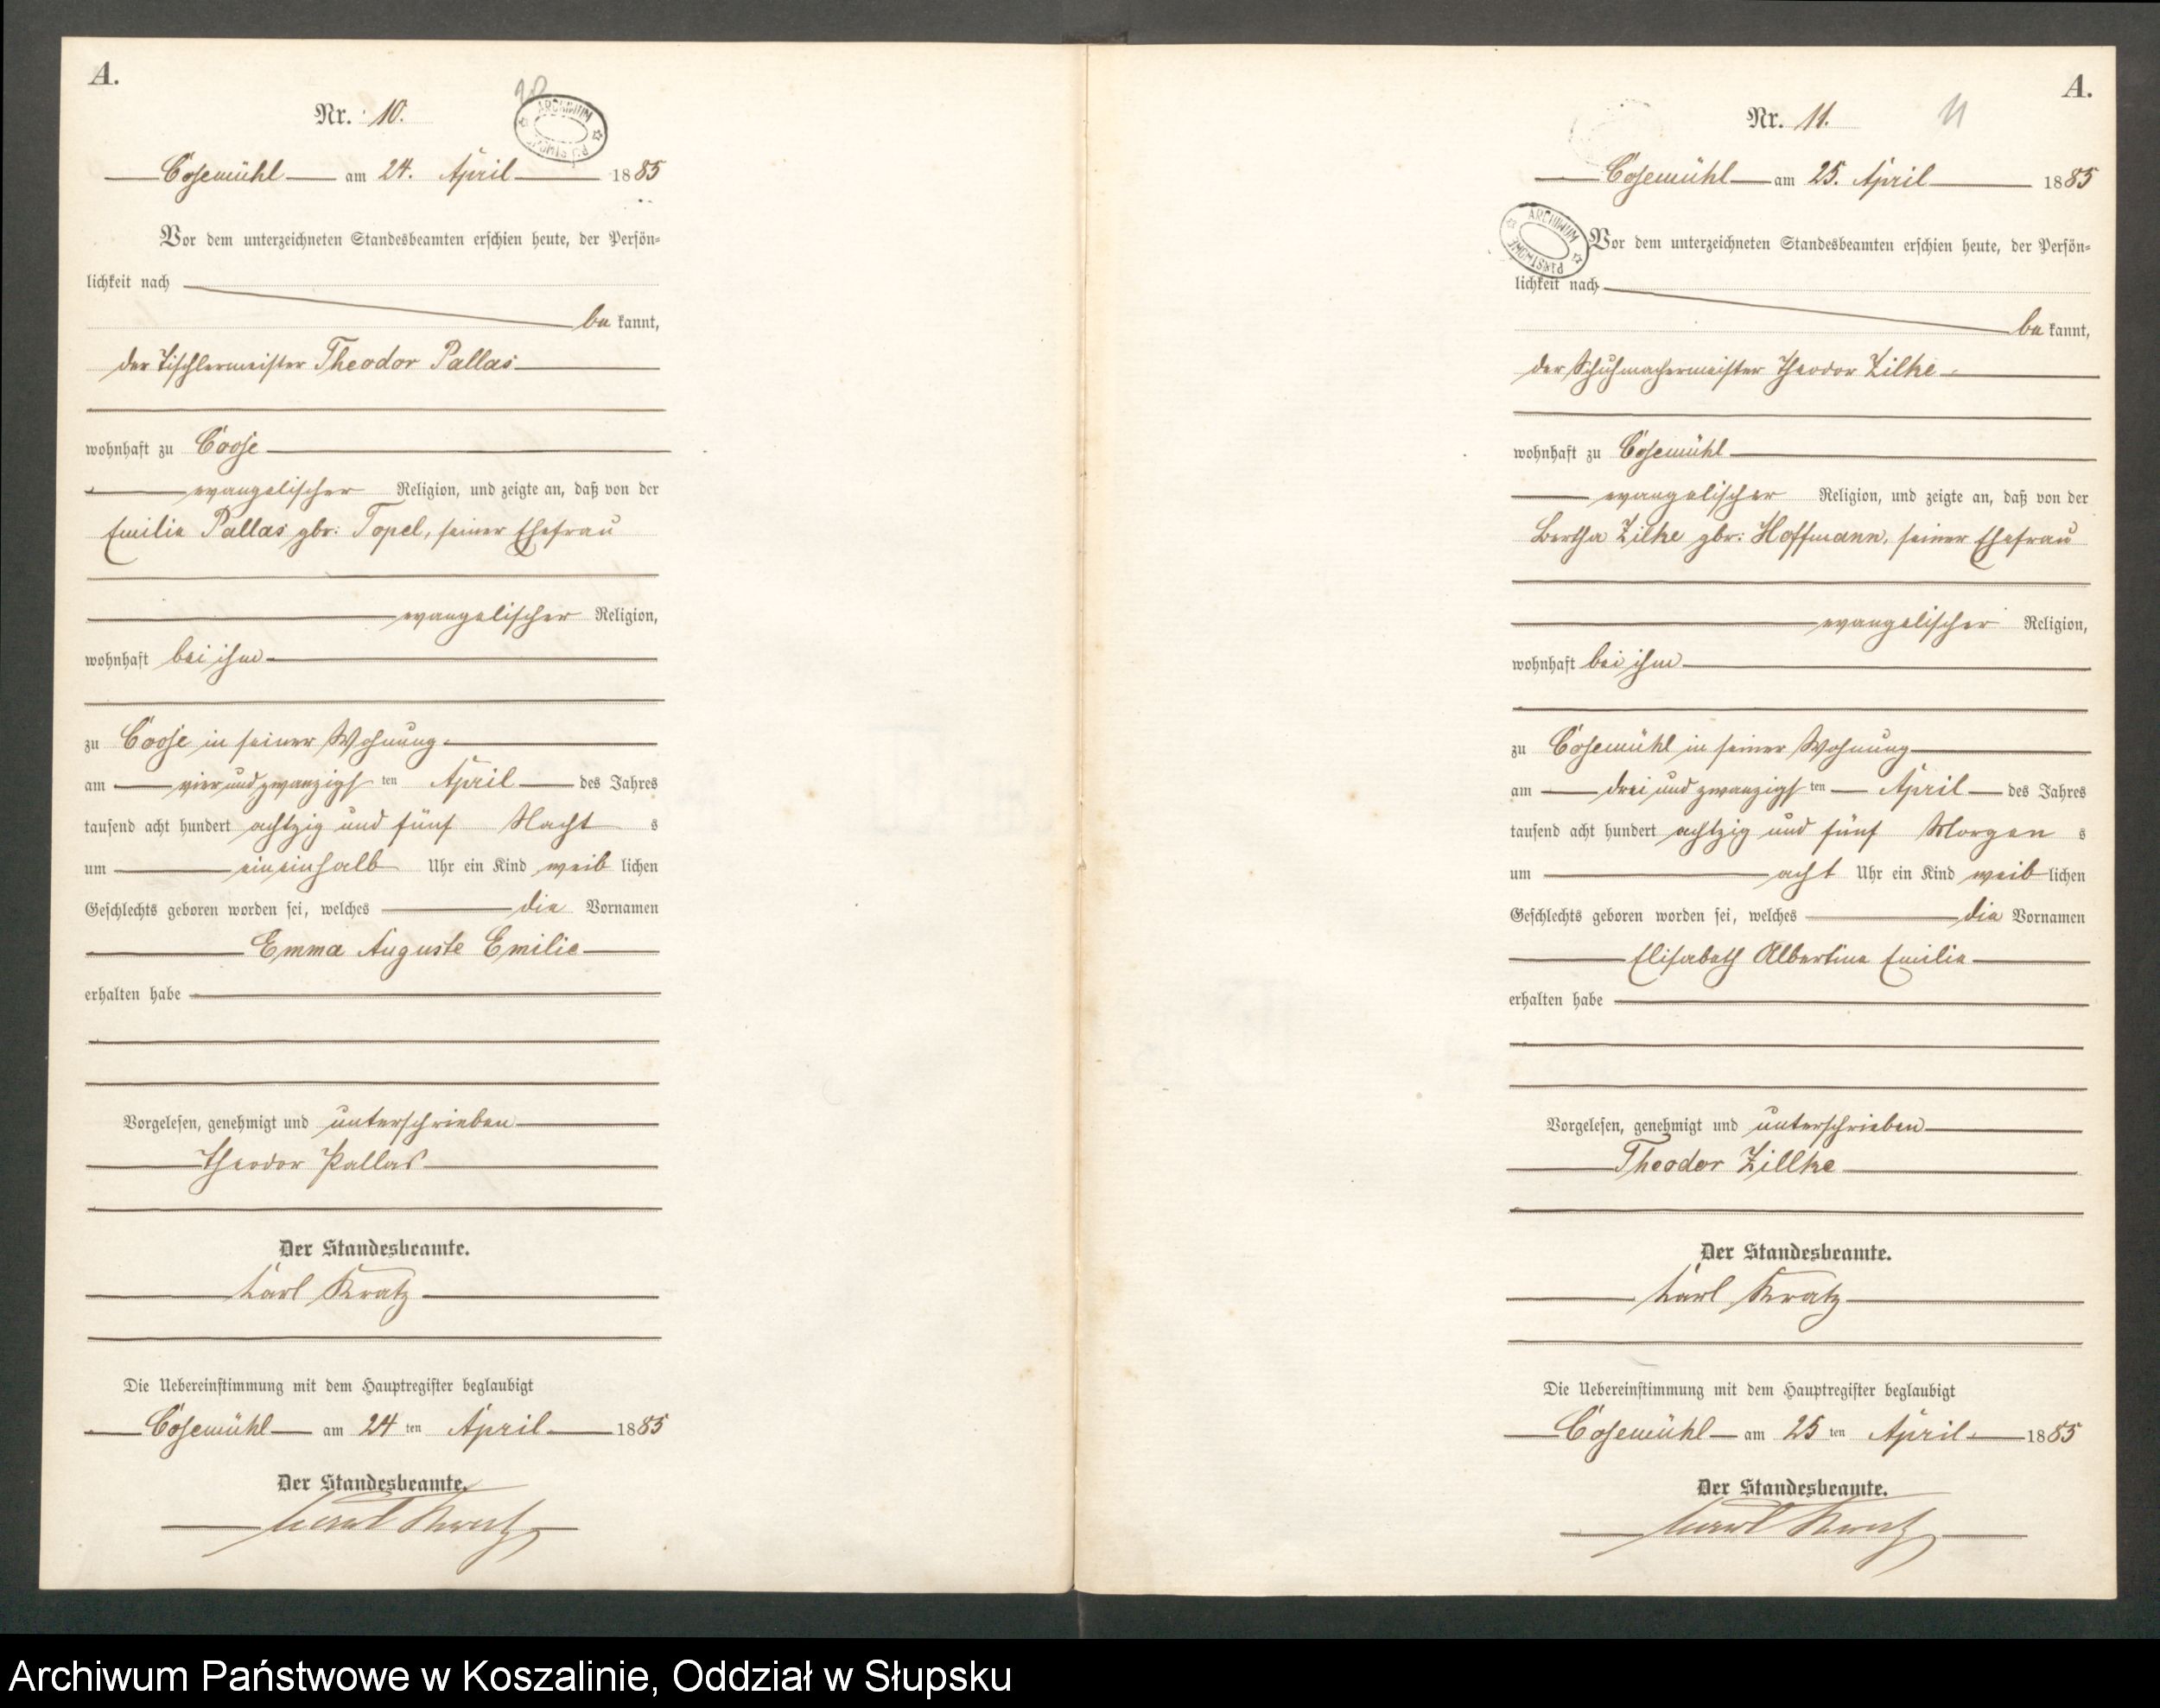 A.
Nr. 10.
ARCHIWUM
Cosemühl am 24. April 1885
Vor dem unterzeichneten Standesbeamten erschien heute, der Persön=
lichkeit nach
be kannt,
der Tischlermeister Theodor Pallas
wohnhaft zu Coose
evangelischer Religion, und zeigte an, daß von der
Emilie Pallas gbr: Topel, seiner Ehefrau
evangelischer Religion,
wohnhaft bei ihm
zu Coose in seiner Wohnung
am vier und zwanzigs ten April des Jahres
tausend acht hundert achtzig und fünf Nacht s
um eineinhalb Uhr ein Kind weib lichen
Geschlechts geboren worden sei, welches die Vornamen
Emma Auguste Emilie
erhalten habe
Vorgelesen, genehmigt und unterschrieben
Theodor Pallas
Der Standesbeamte.
Karl Kratz
Die Uebereinstimmung mit dem Hauptregister beglaubigt
Cosemühl am 24 ten April 1885
Der Standesbeamte.
Karl Kratz
A.
Nr. 11. 11
Cosemühl am 25. April 1885
ARCHIWUM PAŃSTWOWE
Vor dem unterzeichneten Standesbeamten erschien heute, der Persön=
lichkeit nach
be kannt,
der Schuhmachermeister Theodor Zilke
wohnhaft zu Cosemühl
evangelischer Religion, und zeigte an, daß von der
Bertha Zilke gbr: Hoffmann, seiner Ehefrau
evangelischer Religion,
wohnhaft bei ihm
zu Cosemühl in seiner Wohnung
am drei und zwanzigs ten April des Jahres
tausend acht hundert achtzig und fünf Morgen s
um acht Uhr ein Kind weib lichen
Geschlechts geboren worden sei, welches die Vornamen
Elisabeth Albertine Emilie
erhalten habe
Vorgelesen, genehmigt und unterschrieben
Theodor Zillke
Der Standesbeamte.
Karl Kratz
Die Uebereinstimmung mit dem Hauptregister beglaubigt
Cosemühl am 25 ten April 1885
Der Standesbeamte.
Karl Kratz
Archiwum Państwowe w Koszalinie, Oddział w Słupsku